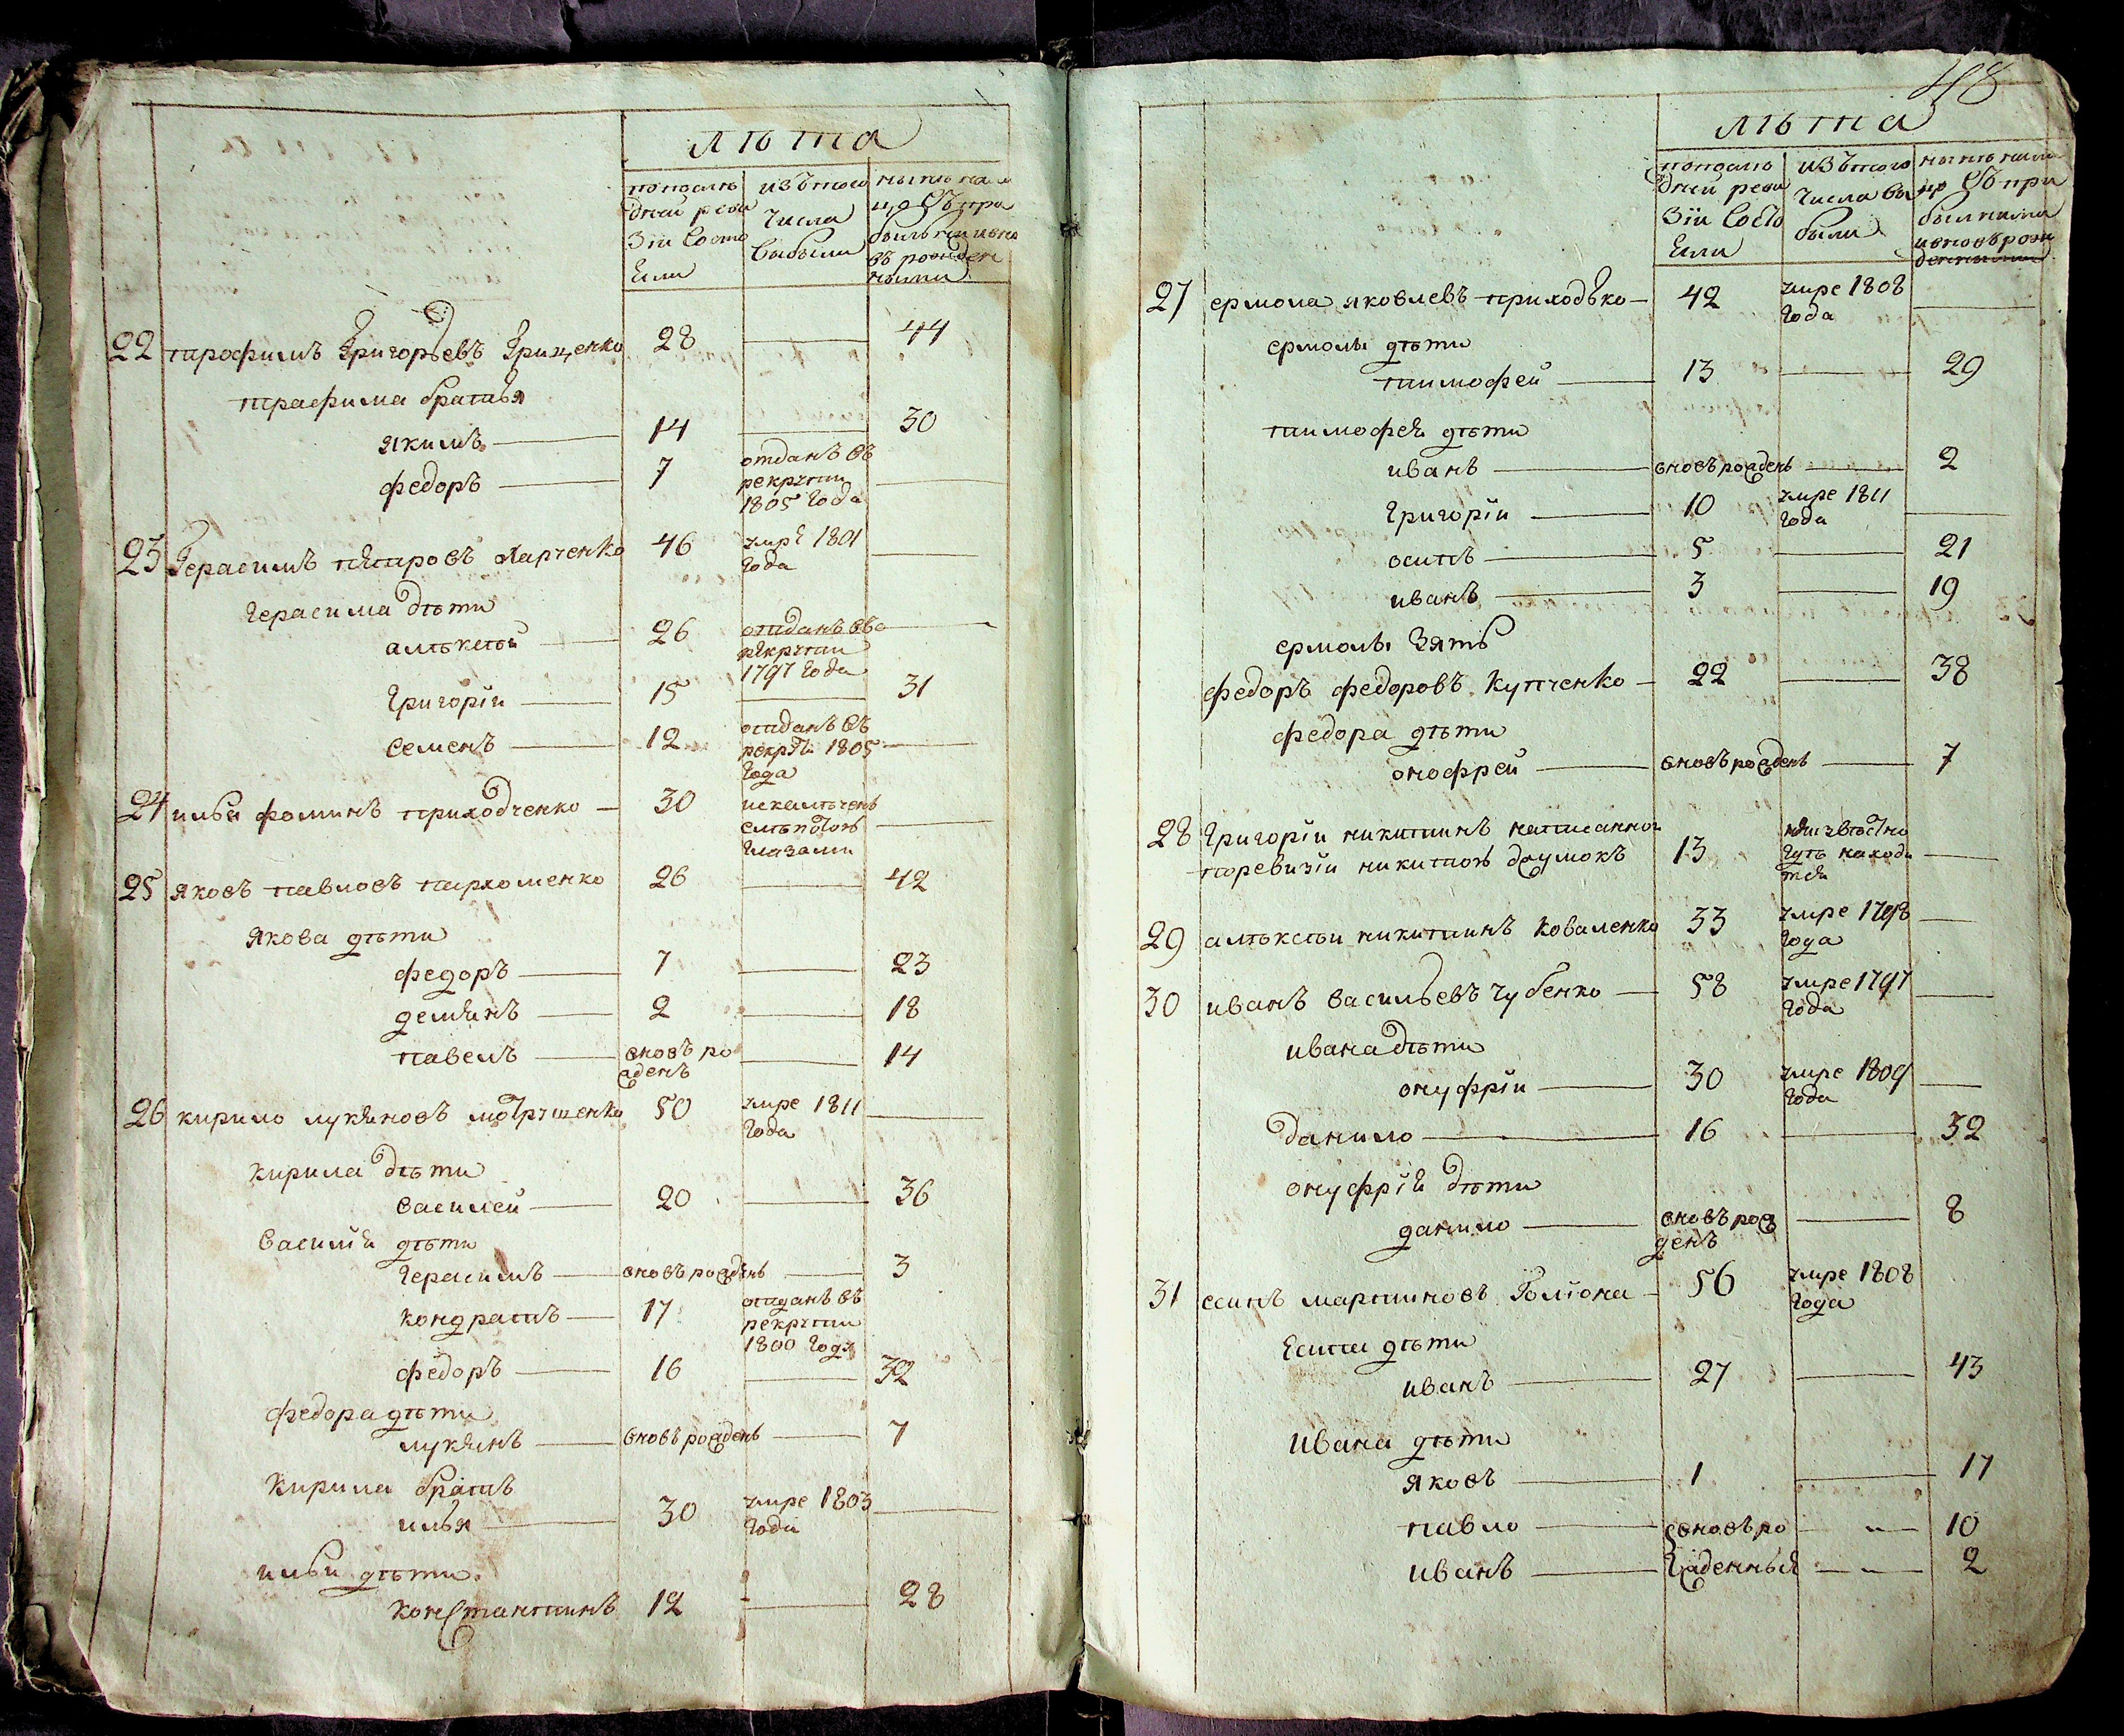 лѣта
попослѣ дней реви зіи состо яли
изътого числа выбыли
нынѣ на ли цо съ при былыми ивно въ рожден ными
22 трофимъ Григорьевъ Гриценко 28 — 44
трафима братья
якимъ — 14 — 30
федоръ — 7 отданъ въ рекруты 1805 года —
23 Герасимъ петровъ харченко 46 умре 1801 года —
герасима дѣти
алѣксѣй — 26 отданъ въ рекруты 1797 года —
григоріи — 15 — 31
семенъ — 12 отданъ въ рекруты 1805 года —
24 илья фоминъ приходченко — 30 искалѣченъ слѣпотою глазами —
25 яковъ павловъ пархоменко 26 — 42
якова дѣти
федоръ — 7 — 23
демянъ — 2 — 18
павелъ — вновъ ро жденъ — 14
26 кирило лукяновъ 50 умре 1811 года —
кирила дѣти
василей — 20 — 36
василія дѣти
герасимъ — вновъ рожденъ — 3
кондратъ — 17 отданъ въ рекруты 1800 году
федоръ — 16 — 32
федора дѣти
лукянъ — вновъ рожденъ — 7
кирила братъ
илья — 30 умре 1803 года —
ильи дѣти
константинъ 12 — 28
48
лѣта
попослѣ дней реви зіи состо яли
изътого числа вы были
нынѣ нали цо съ при былими ивновъ рож денными
27 ермола яковлевъ приходько — 42 умре 1808 года —
ермолы дѣти
тимофей — 13 — 29
тимофея дѣти
иванъ — вновъ рожденъ — 2
григоріи — 10 умре 1811 года —
осипъ — 5 — 21
иванъ — 3 — 19
ермолы зять
федоръ федоровъ купченко — 22 — 38
федора дѣти
онофрей — вновъ рожденъ — 7
28 григоріи никитинъ написанной
поревизіи никитою 13 неизвѣстно гдѣ находи тся —
29 алѣксѣи никитинъ коваленко 33 умре 1798 года —
30 иванъ васильевъ чубенко — 58 умре 1797 года —
ивана дѣти
онуфріи — 30 умре 1809 года —
данило — 16 — 32
онуфрія дѣти
данило — вновъ рож денъ — 8
31 есипъ мартиновъ — 56 умре 1808 года
есипа дѣти
иванъ — 27 — 43
ивана дѣти
яковъ — 1 — 17
павло — вновъ ро — 10
иванъ — жденныя — 2